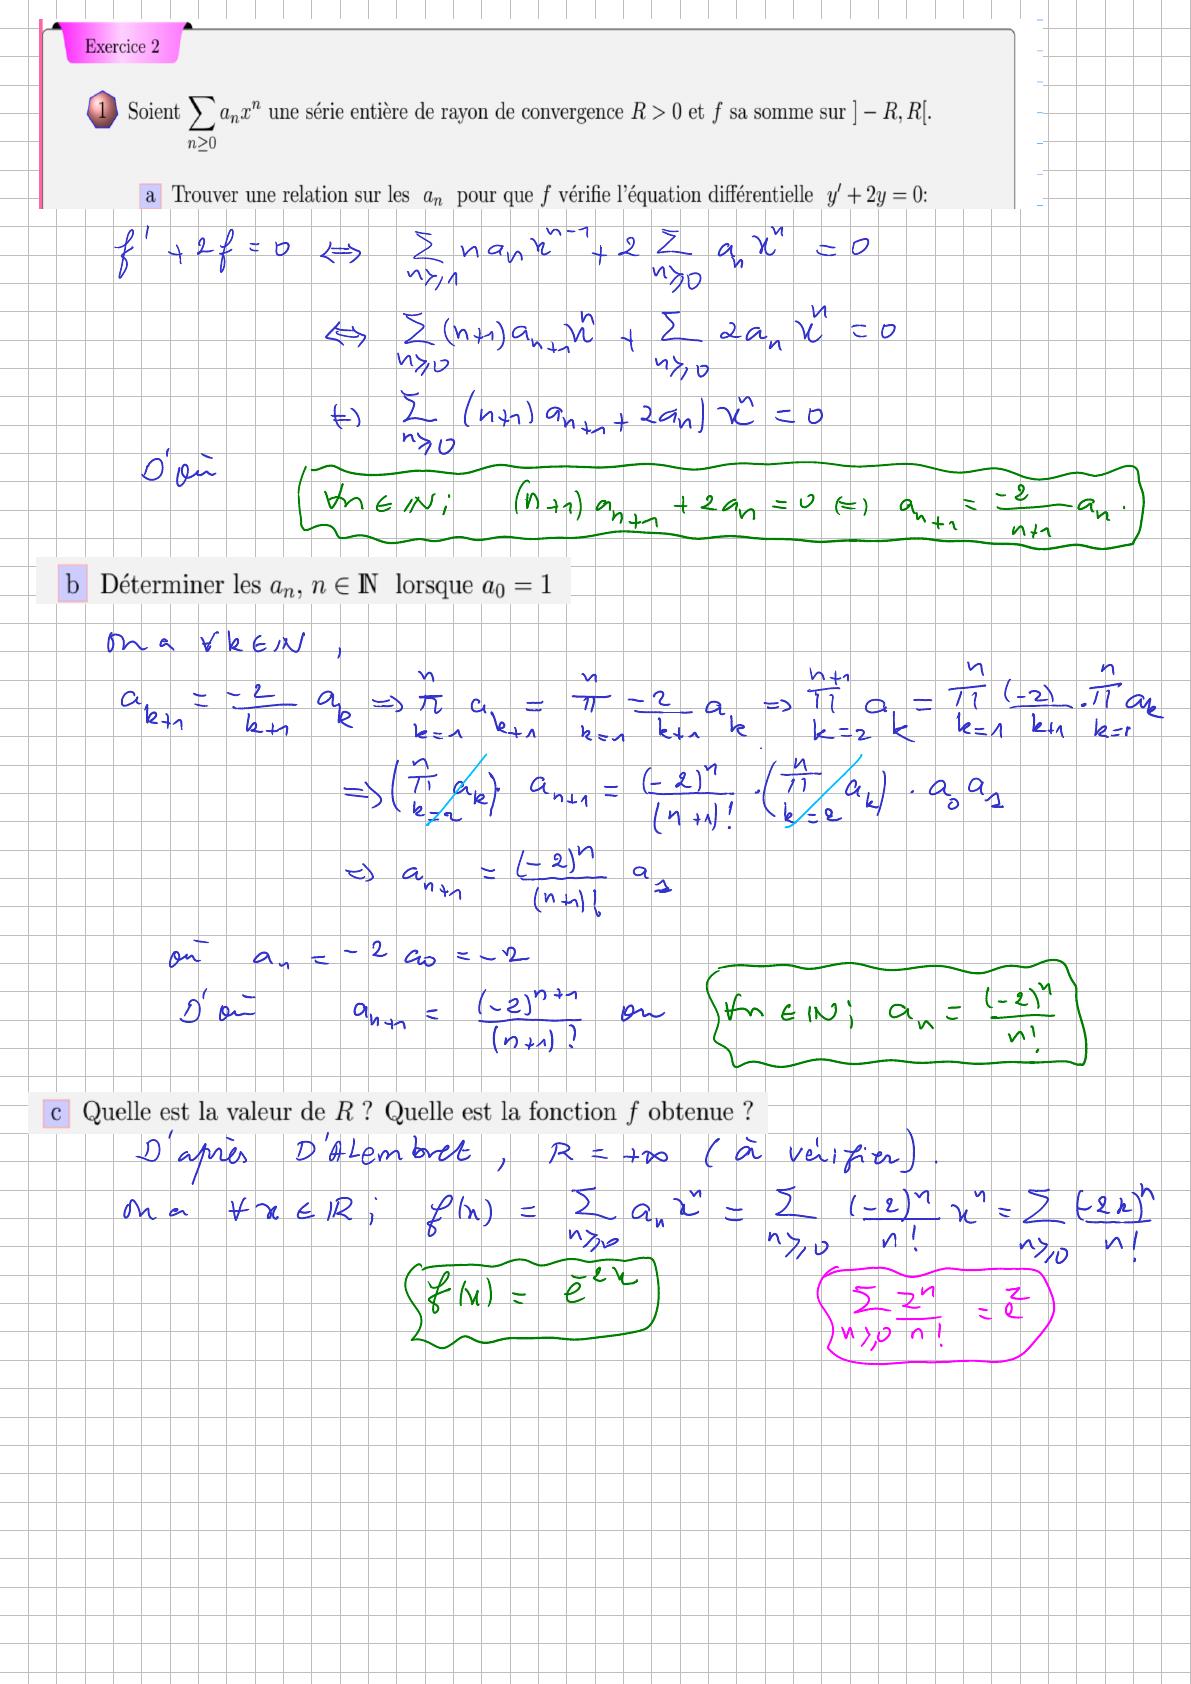 Exercice 2
1 Soient ∑_{n≥0} a_n x^n une série entière de rayon de convergence R > 0 et f sa somme sur ] − R, R[.
a Trouver une relation sur les a_n pour que f vérifie l'équation différentielle y' + 2y = 0:
f' + 2f = 0 ⇔ ∑_{n≥1} n a_n x^{n-1} + 2 ∑_{n≥0} a_n x^n = 0
⇔ ∑_{n≥0} (n+1) a_{n+1} x^n + ∑_{n≥0} 2a_n x^n = 0
⇔ ∑_{n≥0} (n+1) a_{n+1} + 2a_n) x^n = 0
D'où
∀n ∈ ℕ; (n+1) a_{n+1} + 2a_n = 0 ⇔ a_{n+1} = \frac{-2}{n+1} a_n.
b Déterminer les a_n, n ∈ ℕ lorsque a_0 = 1
on a ∀k ∈ ℕ,
a_{k+1} = \frac{-2}{k+1} a_k ⇒ π_{k=1}^{n} a_{k+1} = π_{k=1}^{n} \frac{-2}{k+1} a_k ⇒ π_{k=2}^{n+1} a_k = π_{k=1}^{n} \frac{(-2)}{k+1} · π_{k=1}^{n} a_k
⇒ (π_{k=2}^{n} a_k) · a_{n+1} = \frac{(-2)^n}{(n+1)!} · (π_{k=2}^{n} a_k) · a_0 a_1
⇒ a_{n+1} = \frac{(-2)^n}{(n+1)!} a_1
où a_1 = -2 a_0 = -2
D'où a_{n+1} = \frac{(-2)^{n+1}}{(n+1)!} ou ∀n ∈ ℕ; a_n = \frac{(-2)^n}{n!}
c Quelle est la valeur de R ? Quelle est la fonction f obtenue ?
D'après D'ALembret, R = +∞ (à vérifier).
on a ∀x ∈ ℝ; f(x) = ∑_{n≥0} a_n x^n = ∑_{n≥0} \frac{(-2)^n}{n!} x^n = ∑_{n≥0} \frac{(-2x)^n}{n!}
f(x) = e^{-2x}
∑_{n≥0} \frac{z^n}{n!} = e^z